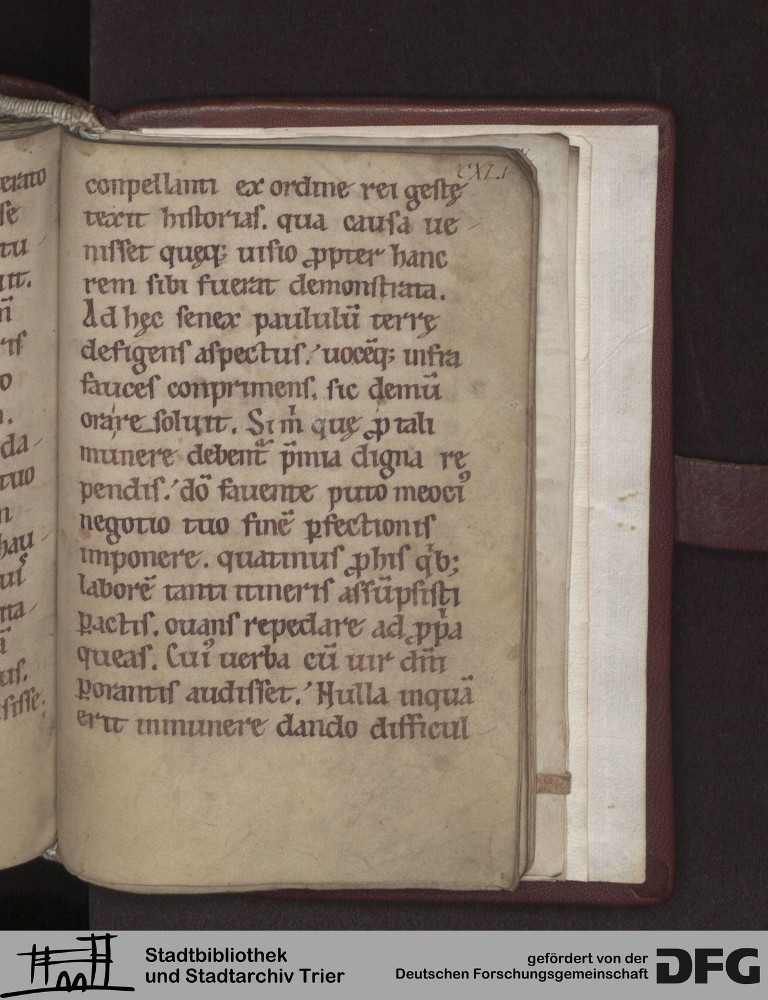 erato
se
tu
da
tuo
n
hau
CXLI
conpellanti ex ordine rei gestę
texit historias. qua causa ue
nisset quęq; uisio ꝓpter hanc
rem sibi fuerat demonstrata.
Ad hęc senex paululū terrę
defigens aspectus, uocēq; infra
fauces conprimens, sic demū
orare soluit. Si m̄ quę ꝓ tali
munere debent̄ p̄mia digna re
pendis, dō fauente puto meoꝯ
negotio tuo finē ꝑfectionis
imponere. quatinus ꝓ his qͥb;
laborē tanti itineris assūpsisti
ꝑactis. ouans repedare ad ꝓpͥa
queas. Cuiꝰ uerba cū uir dn̄i
ꝑorantis audisset, Nulla inquā
erit inmunere dando difficul
Stadtbibliothek
und Stadtarchiv Trier
gefördert von der
Deutschen Forschungsgemeinschaft
DFG